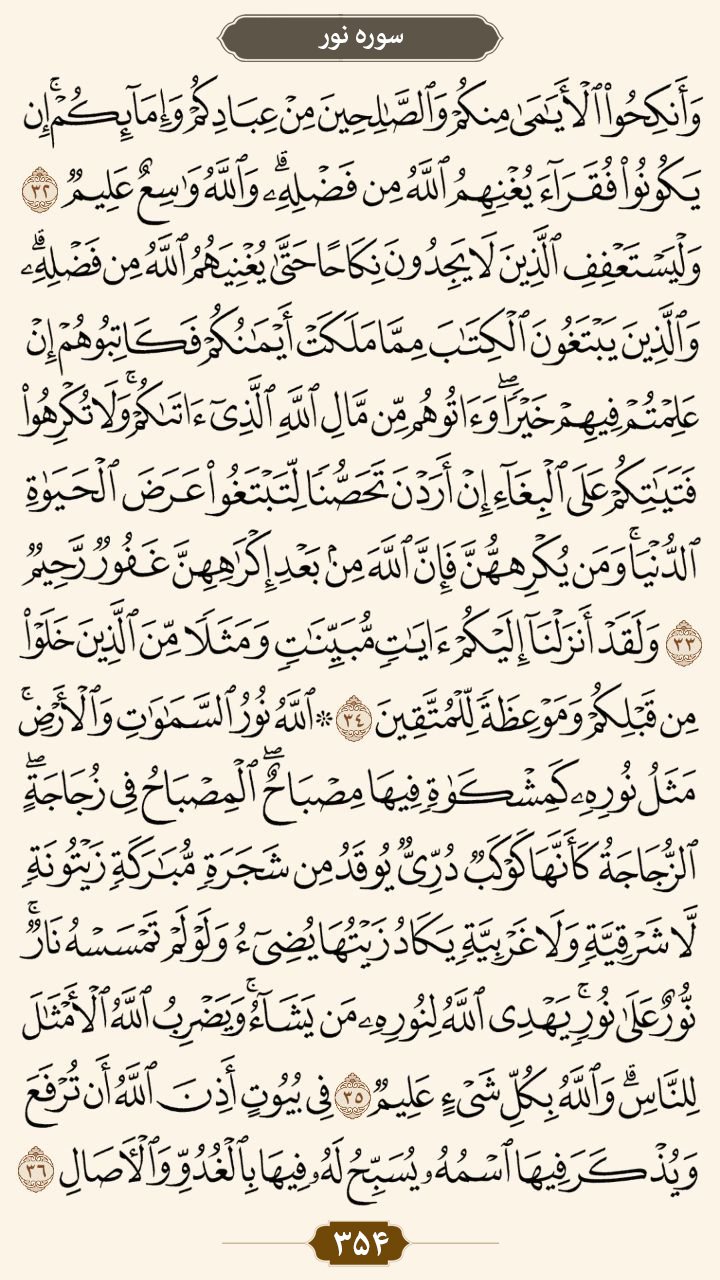 سوره نور
وَأَنكِحُوا۟ ٱلْأَيَـٰمَىٰ مِنكُمْ وَٱلصَّـٰلِحِينَ مِنْ عِبَادِكُمْ وَإِمَآئِكُمْ ۚ إِن
يَكُونُوا۟ فُقَرَآءَ يُغْنِهِمُ ٱللَّهُ مِن فَضْلِهِۦ ۗ وَٱللَّهُ وَٰسِعٌ عَلِيمٌ ٣٢
وَلْيَسْتَعْفِفِ ٱلَّذِينَ لَا يَجِدُونَ نِكَاحًا حَتَّىٰ يُغْنِيَهُمُ ٱللَّهُ مِن فَضْلِهِۦ ۗ
وَٱلَّذِينَ يَبْتَغُونَ ٱلْكِتَـٰبَ مِمَّا مَلَكَتْ أَيْمَـٰنُكُمْ فَكَاتِبُوهُمْ إِنْ
عَلِمْتُمْ فِيهِمْ خَيْرًا ۖ وَءَاتُوهُم مِّن مَّالِ ٱللَّهِ ٱلَّذِىٓ ءَاتَىٰكُمْ ۚ وَلَا تُكْرِهُوا۟
فَتَيَـٰتِكُمْ عَلَى ٱلْبِغَآءِ إِنْ أَرَدْنَ تَحَصُّنًا لِّتَبْتَغُوا۟ عَرَضَ ٱلْحَيَوٰةِ
ٱلدُّنْيَا ۚ وَمَن يُكْرِههُّنَّ فَإِنَّ ٱللَّهَ مِنۢ بَعْدِ إِكْرَٰهِهِنَّ غَفُورٌ رَّحِيمٌ
٣٣ وَلَقَدْ أَنزَلْنَآ إِلَيْكُمْ ءَايَـٰتٍ مُّبَيِّنَـٰتٍ وَمَثَلًا مِّنَ ٱلَّذِينَ خَلَوْا۟
مِن قَبْلِكُمْ وَمَوْعِظَةً لِّلْمُتَّقِينَ ٣٤ * ٱللَّهُ نُورُ ٱلسَّمَـٰوَٰتِ وَٱلْأَرْضِ ۚ
مَثَلُ نُورِهِۦ كَمِشْكَوٰةٍ فِيهَا مِصْبَاحٌ ۖ ٱلْمِصْبَاحُ فِى زُجَاجَةٍ ۖ
ٱلزُّجَاجَةُ كَأَنَّهَا كَوْكَبٌ دُرِّىٌّ يُوقَدُ مِن شَجَرَةٍ مُّبَـٰرَكَةٍ زَيْتُونَةٍ
لَّا شَرْقِيَّةٍ وَلَا غَرْبِيَّةٍ يَكَادُ زَيْتُهَا يُضِىٓءُ وَلَوْ لَمْ تَمْسَسْهُ نَارٌ ۚ
نُّورٌ عَلَىٰ نُورٍ ۗ يَهْدِى ٱللَّهُ لِنُورِهِۦ مَن يَشَآءُ ۚ وَيَضْرِبُ ٱللَّهُ ٱلْأَمْثَـٰلَ
لِلنَّاسِ ۗ وَٱللَّهُ بِكُلِّ شَىْءٍ عَلِيمٌ ٣٥ فِى بُيُوتٍ أَذِنَ ٱللَّهُ أَن تُرْفَعَ
وَيُذْكَرَ فِيهَا ٱسْمُهُۥ يُسَبِّحُ لَهُۥ فِيهَا بِٱلْغُدُوِّ وَٱلْـَٔاصَالِ ٣٦
۳۵۴